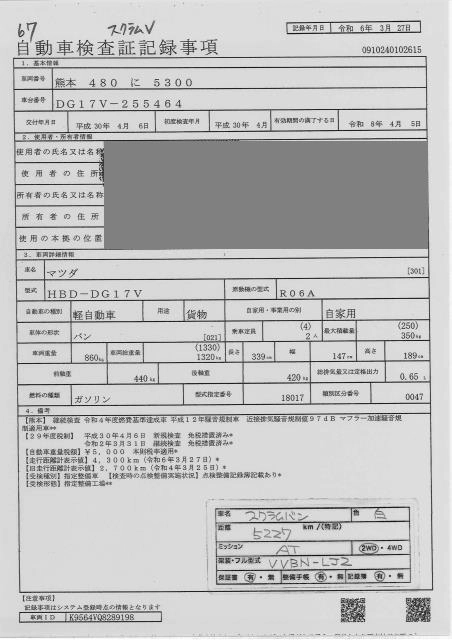 67 スクラムV
記録年月日 令和 6年 3月 27日
自動車検査証記録事項 0910240102615
1. 基本情報
車両番号 熊本 480 に 5300
車台番号 DG17V-255464
交付年月日 平成 30年 4月 6日 初度検査年月 平成 30年 4月 有効期間の満了する日 令和 8年 4月 5日
2. 使用者・所有者情報
使用者の氏名又は名称
使用者の住所
所有者の氏名又は名称
所有者の住所
使用の本拠の位置
3. 車両詳細情報
車名 マツダ [301]
型式 HBD-DG17V 原動機の型式 R06A
自動車の種別 軽自動車 用途 貨物 自家用・事業用の別 自家用
車体の形状 バン [021] 乗車定員 (4) 2人 最大積載量 (250) 350kg
車両重量 860kg 車両総重量 (1330) 1320kg 長さ 339cm 幅 147cm 高さ 189cm
前軸重 440kg 後軸重 420kg 総排気量又は定格出力 0.65 L
燃料の種類 ガソリン 型式指定番号 18017 類別区分番号 0047
4. 備考
【熊本】 継続検査 令和4年度燃費基準達成車 平成12年騒音規制車 近接排気騒音規制値97dB マフラー加速騒音規
制適用車**
【29年度税制】 平成30年4月6日 新規検査 免税措置済み*
令和2年3月31日 継続検査 免税措置済み*
【自動車重量税額】¥5,000 本則税率適用*
【走行距離計表示値】4,300km(令和6年3月27日)*
【旧走行距離計表示値】2,700km(令和4年3月25日)*
【受検種別】指定整備車 【検査時の点検整備実施状況】点検整備記録簿記載あり*
【受検形態】指定整備工場**
車名 スクラムバン 色 白
距離 5227 km/(特記)
ミッション AT 2WD・4WD
架装・フル型式 VVBN-LJ2
保証書 有・無 整備手帳 有・無 記録簿 有・無
【注意事項】
記録事項はシステム登録時点の情報となります
車両ID K9564VQ8289198